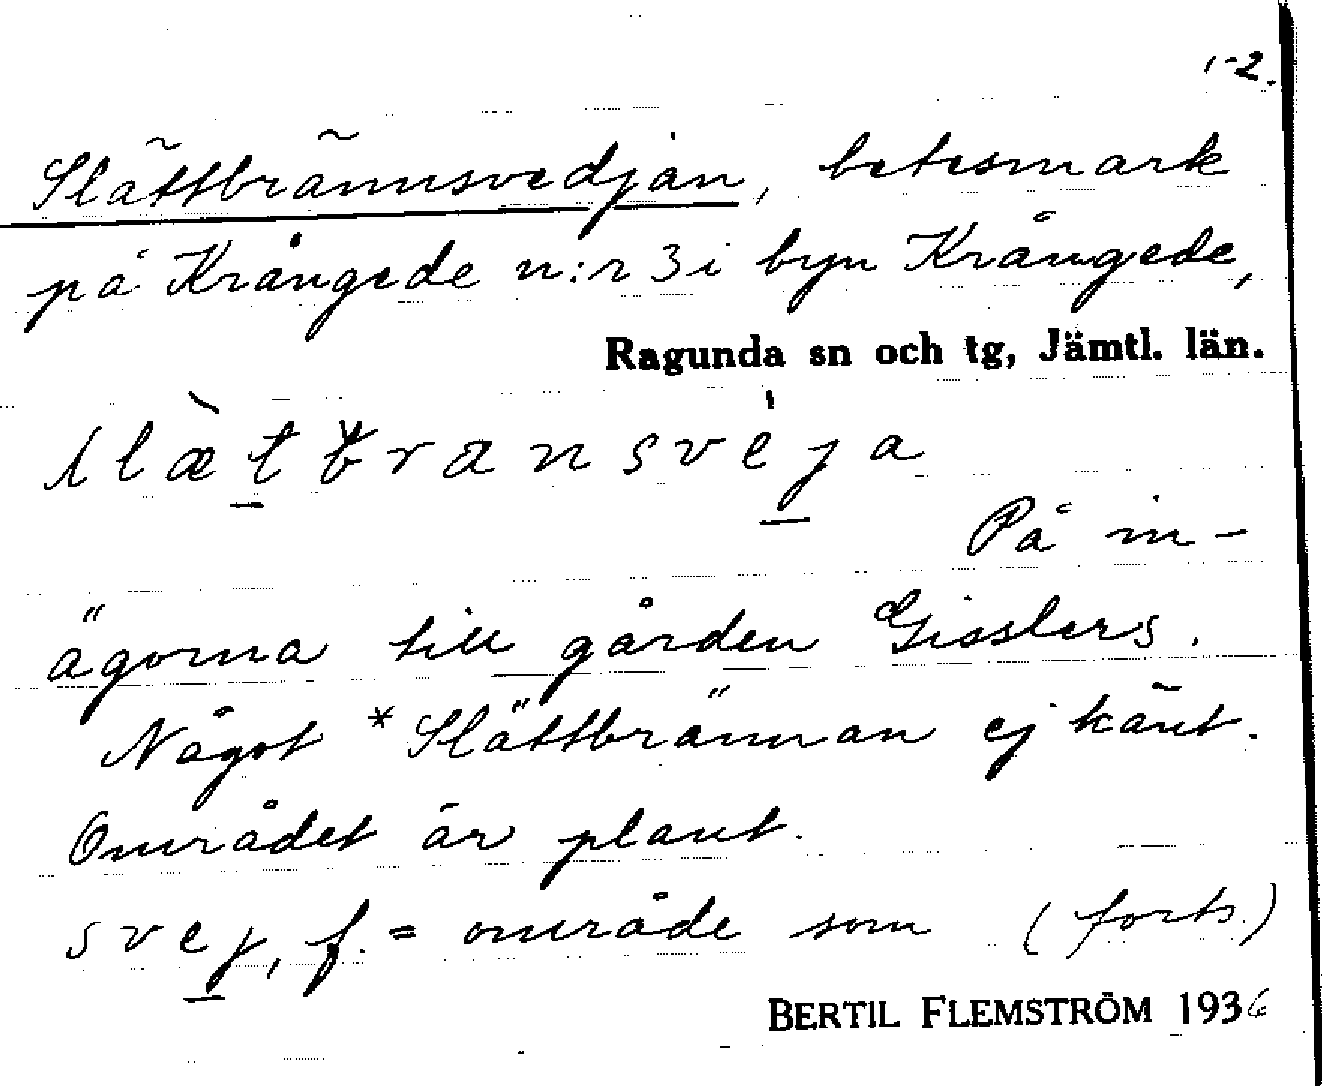 1-2.
Slättbrännsvedjan, betesmark
på Krångede n:r 3 i byn Krångede,
Ragunda sn och tg, Jämtl. län.
slæ̀tbransvéja
På in-
ägorna till gården Gisslers.
Något *Slättbrännan ej känt.
Området är plant.
svej, f. = område som (forts.)
BERTIL FLEMSTRÖM 1936